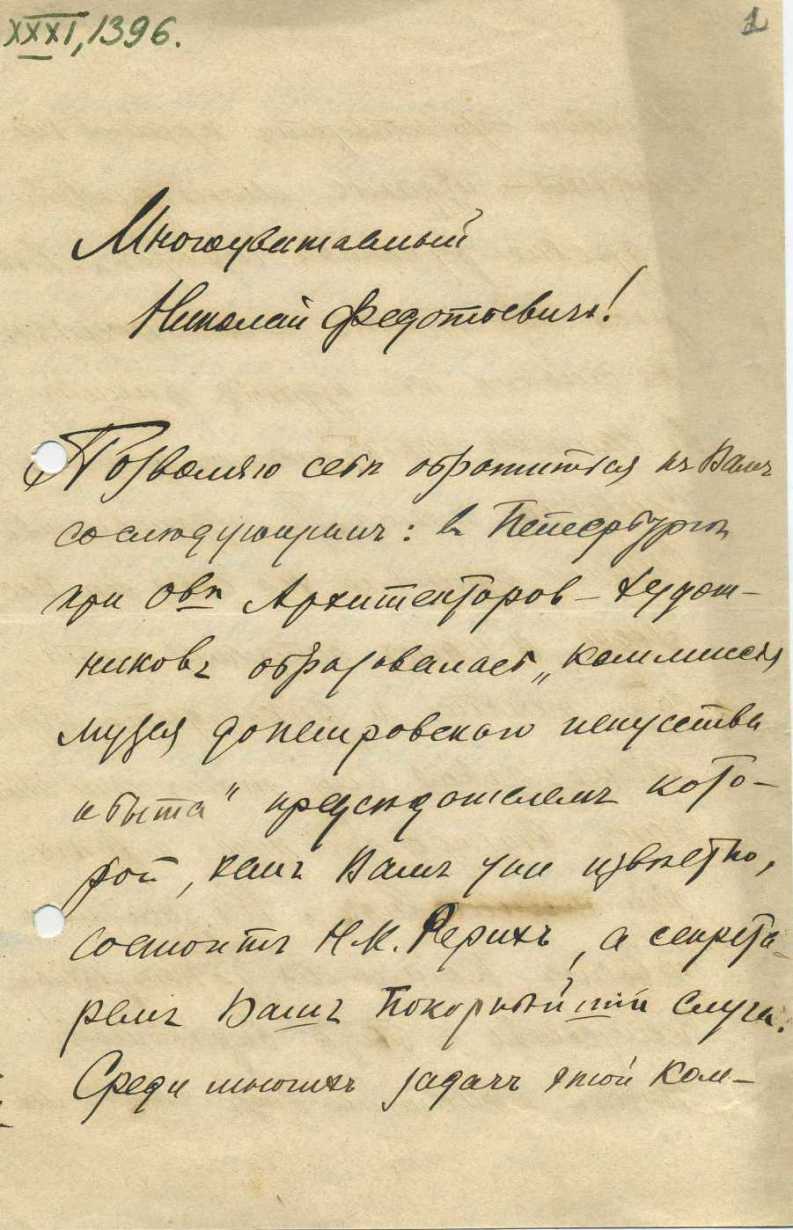 XXXI, 1396.
1
Многоуважаемый
Николай Федотоевичъ!
Позволяю себѣ обратиться къ Вамъ
со слѣдующимъ: въ Петербургѣ
при Овѣ Архитекторов-худож-
никовъ образовалась „Коммиссія
музея допетровскаго искусства
и быта" предсѣдателемъ кото-
рой, какъ Вамъ уже извѣстно,
состоитъ Н.К. Рерихъ, а секрета-
ремъ Вашъ покорнѣйшій слуга.
Среди многихъ задачъ этой Ком-